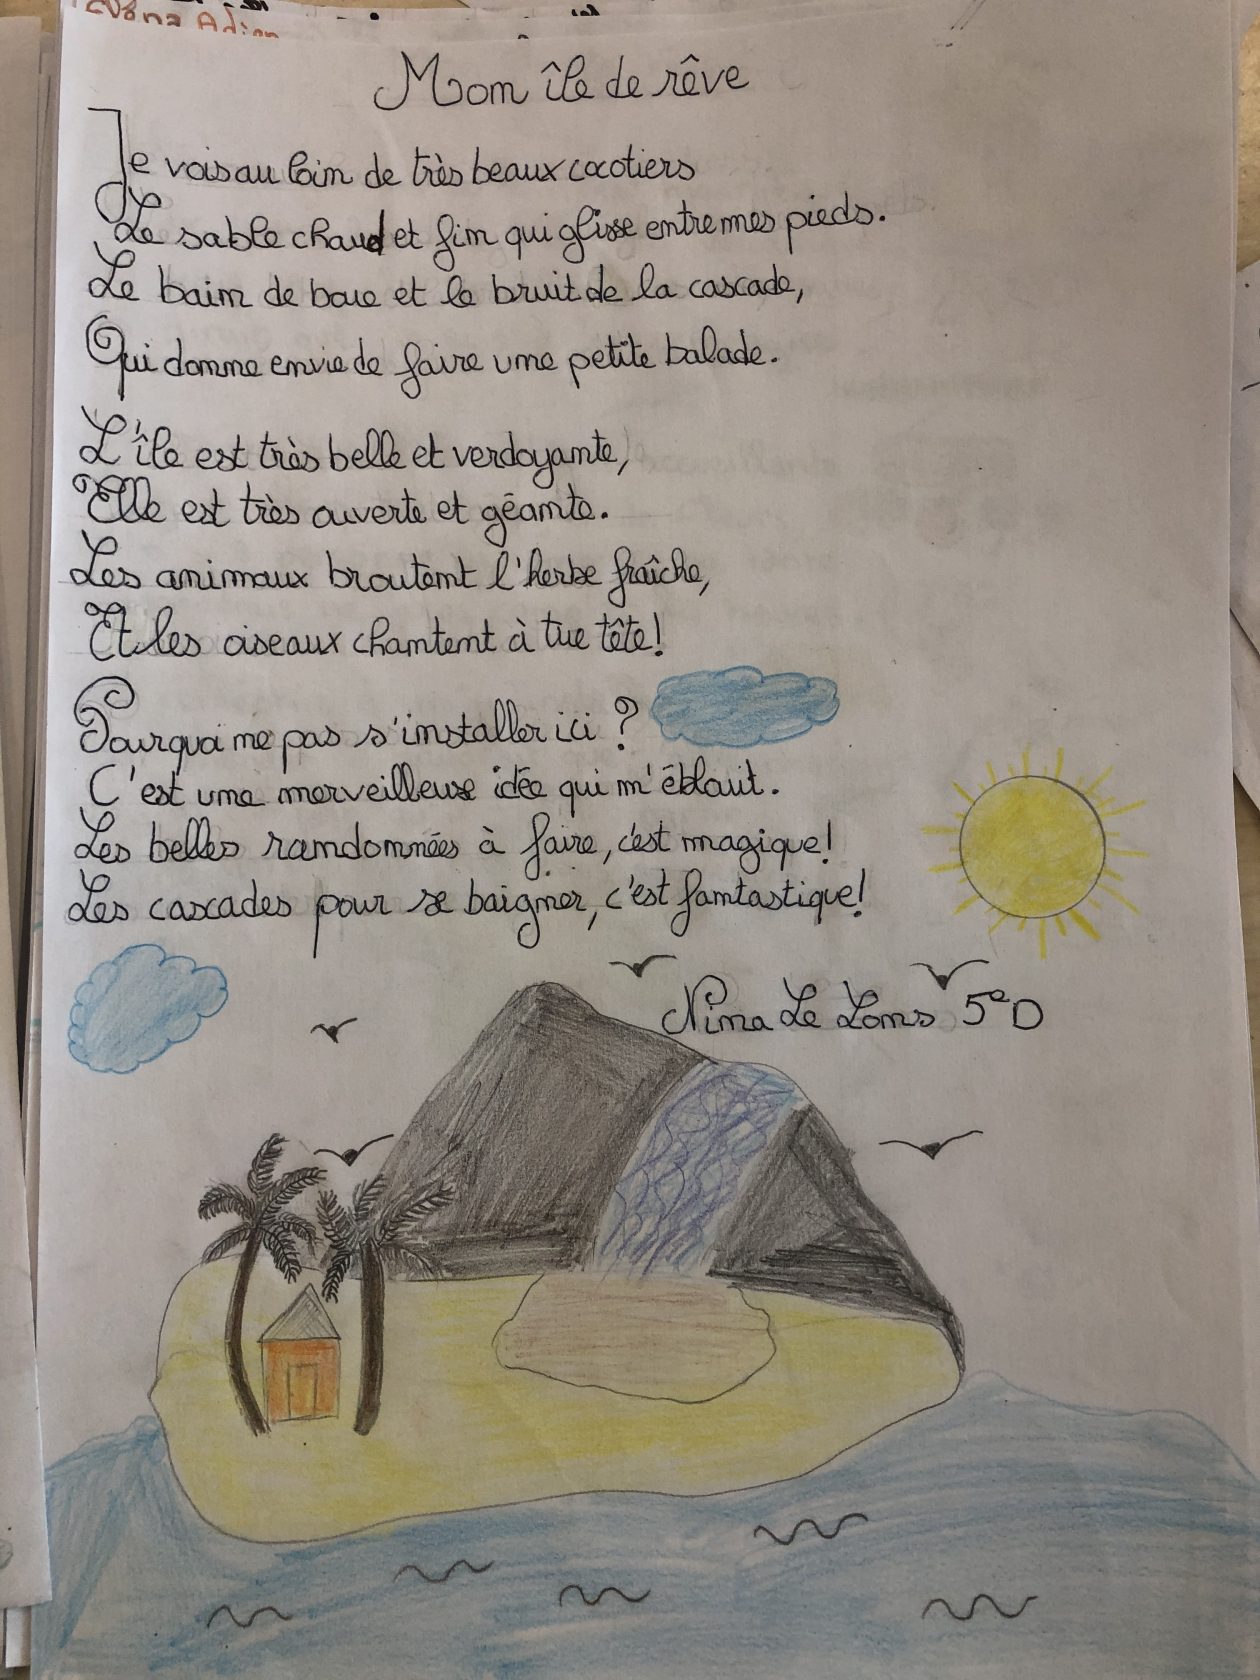 Mon île de rêve
Je vois au loin de très beaux cocotiers
Le sable chaud et fin qui glisse entre mes pieds.
Le bain de boue et le bruit de la cascade,
Qui donne envie de faire une petite balade.
L'île est très belle et verdoyante,
Elle est très ouverte et géante.
Les animaux broutent l'herbe fraîche,
Et les oiseaux chantent à tue tête!
Pourquoi ne pas s'installer ici ?
C'est une merveilleuse idée qui m'éblouit.
Les belles randonnées à faire, c'est magique!
Les cascades pour se baigner, c'est fantastique!
Nina Le Lons 5eD